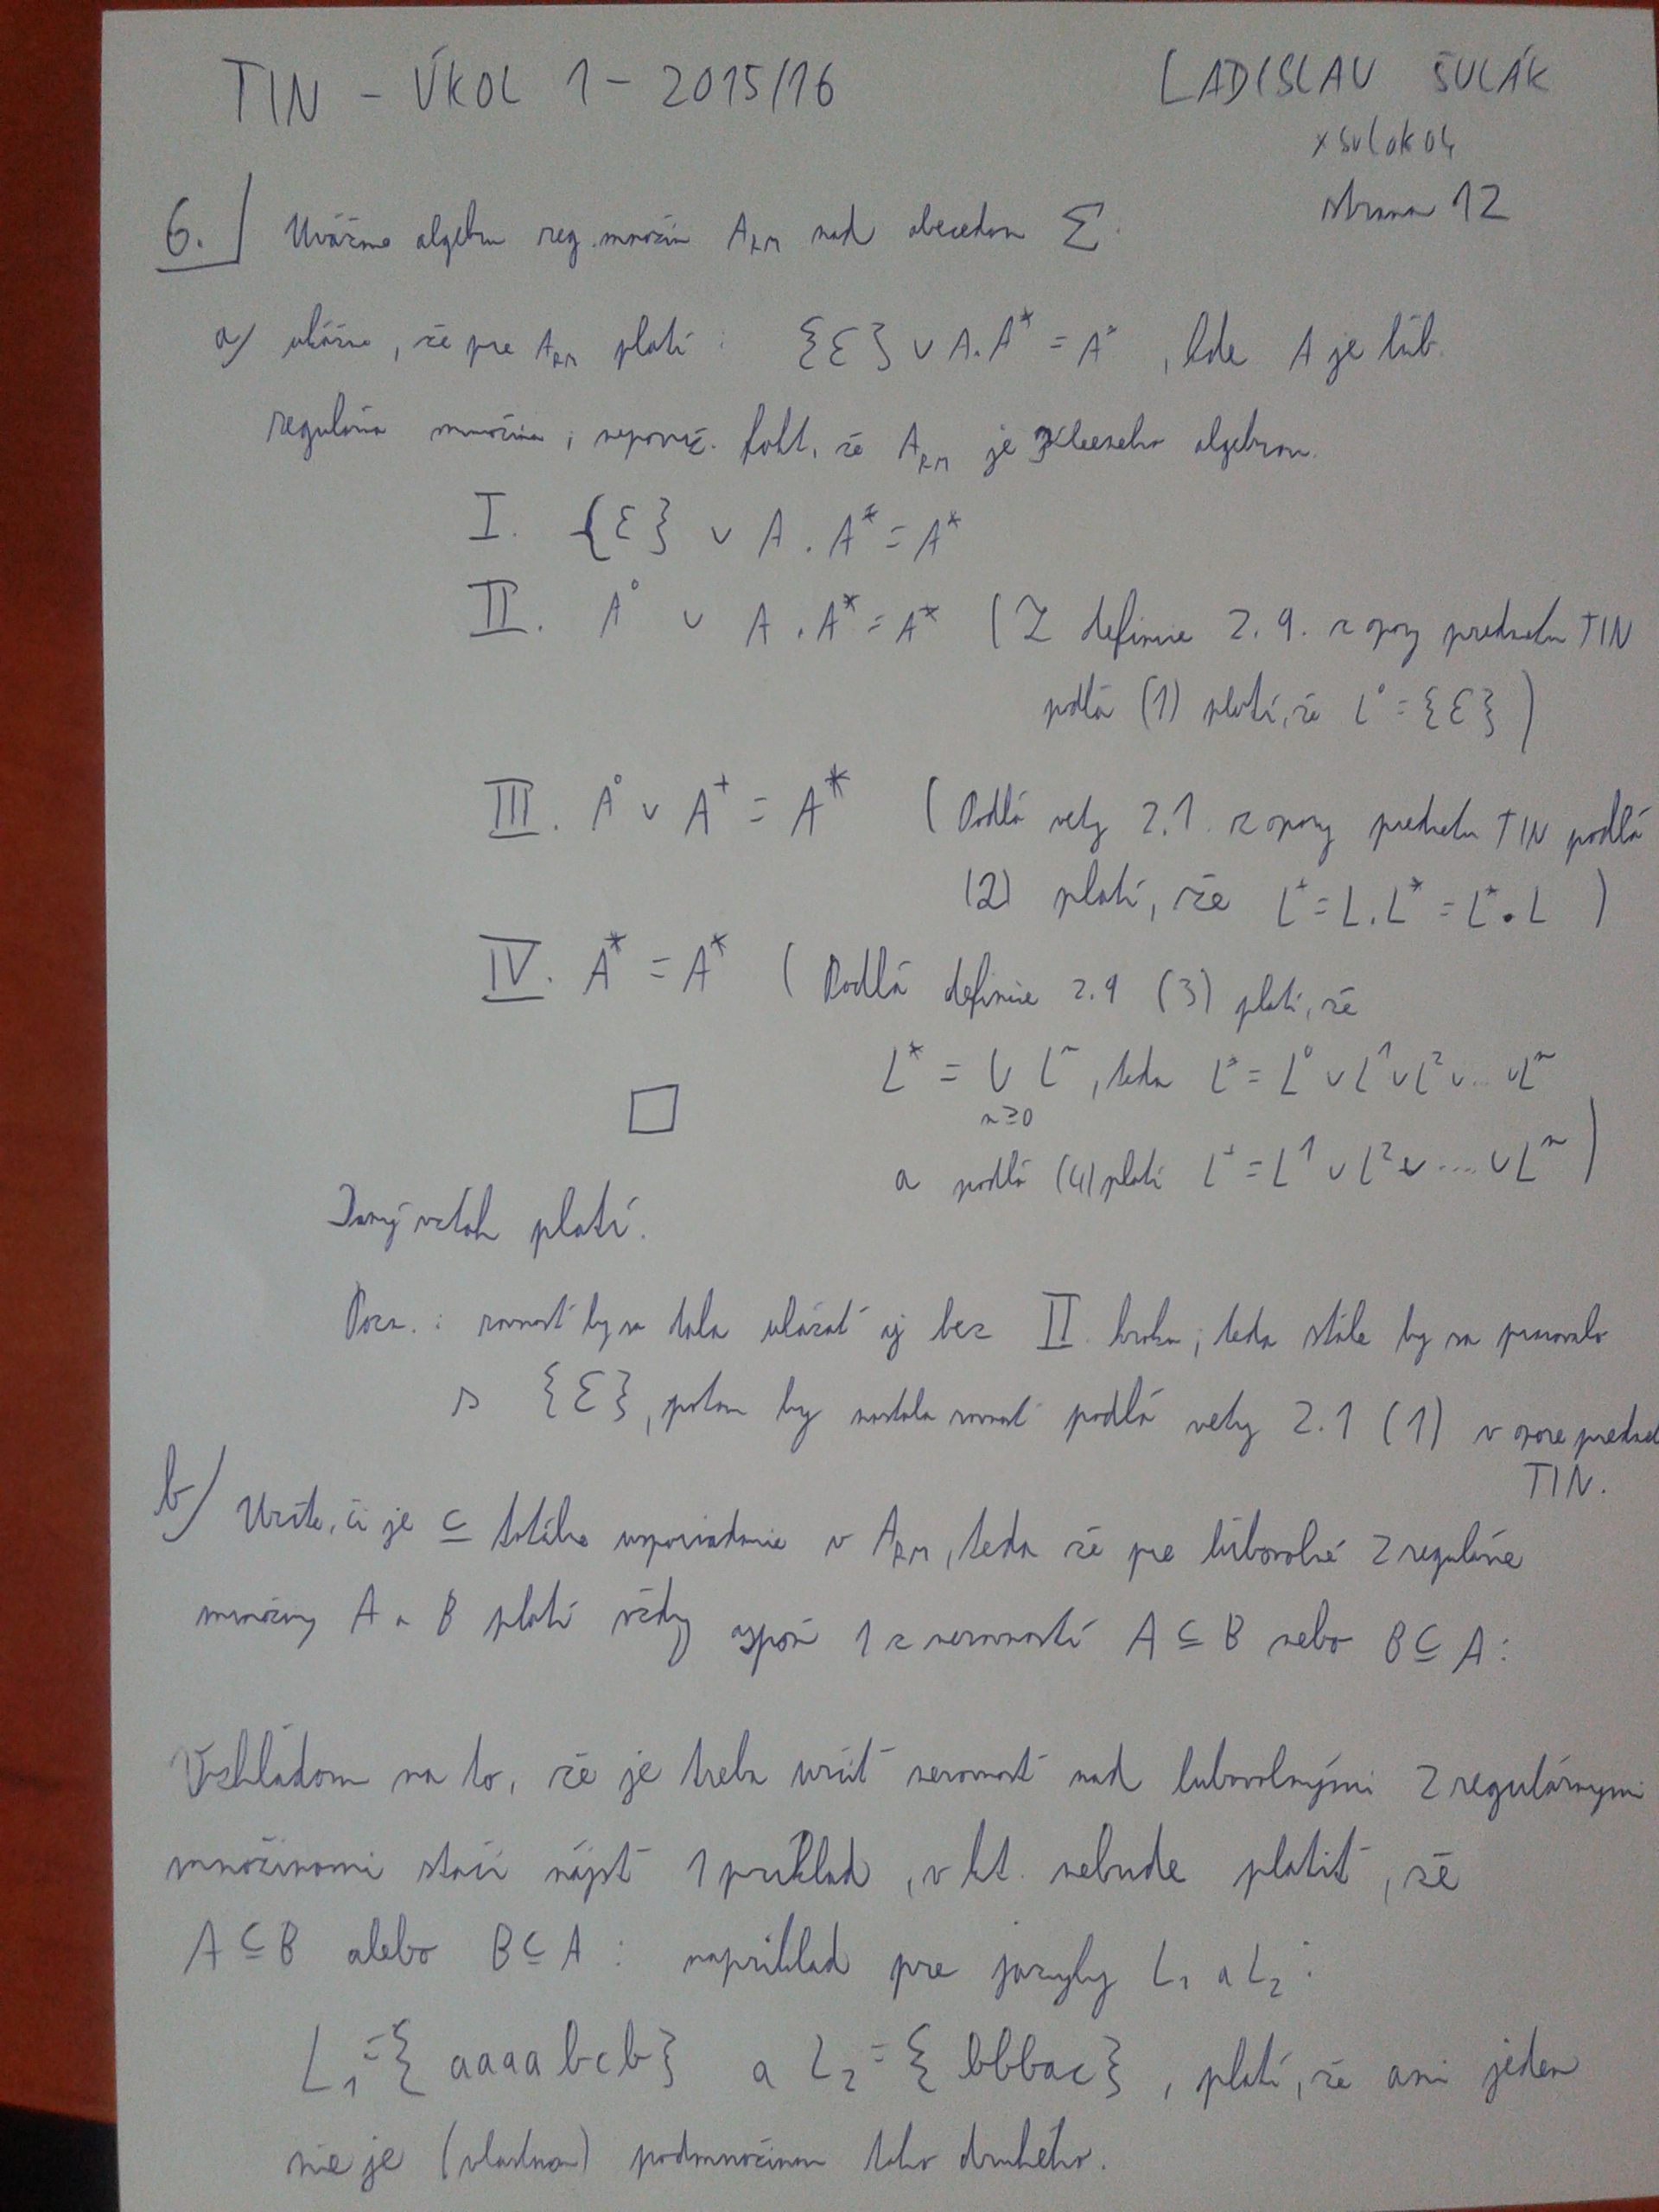 TIN - ÚKOL 1 - 2015/16
LADISLAV ŠULÁK
xsulak04
strana 12
6. Uvážme algebru reg. množín A_RM nad abecedou Σ.
a) ukážme, že pre A_RM platí : {ε} ∪ A.A* = A* , kde A je ľub.
regulárna množina ; nepouž. fakt, že A_RM je Kleeneho algebrou.
I. {ε} ∪ A . A* = A*
II. A⁰ ∪ A . A* = A* (Z definície 2.9. z opory predmetu TIN
podľa (1) platí, že L⁰ = {ε} )
III. A⁰ ∪ A⁺ = A* ( Podľa vety 2.1. z opory predmetu TIN podľa
(2) platí, že L⁺ = L.L* = L*.L )
IV. A* = A* ( Podľa definície 2.9 (3) platí, že
L* = ∪ Lⁿ , teda L* = L⁰ ∪ L¹ ∪ L² ∪ ... ∪ Lⁿ
n≥0
□
a podľa (4) platí L⁺ = L¹ ∪ L² ∪ .... ∪ Lⁿ )
Daný vzťah platí.
Pozn. : rovnosť by sa dala ukázať aj bez II. kroku, teda stále by sa pracovalo
s {ε}, potom by nastala rovnosť podľa vety 2.1 (1) v opore predmet
TIN.
b) Určte, či je ⊆ totálne usporiadanie v A_RM, teda že pre ľubovolné 2 regulárne
množiny A a B platí vždy aspoň 1 z nerovností A ⊆ B nebo B ⊆ A :
Vzhľadom na to, že je treba určiť nerovnosť nad ľubovolnými 2 regulárnymi
množinami stačí nájsť 1 príklad, v kt. nebude platiť, že
A ⊆ B alebo B ⊆ A : napríklad pre jazyky L₁ a L₂ :
L₁ = { aaaabcb} a L₂ = { bbbac} , platí, že ani jeden
nie je (vlastnou) podmnožinou toho druhého.